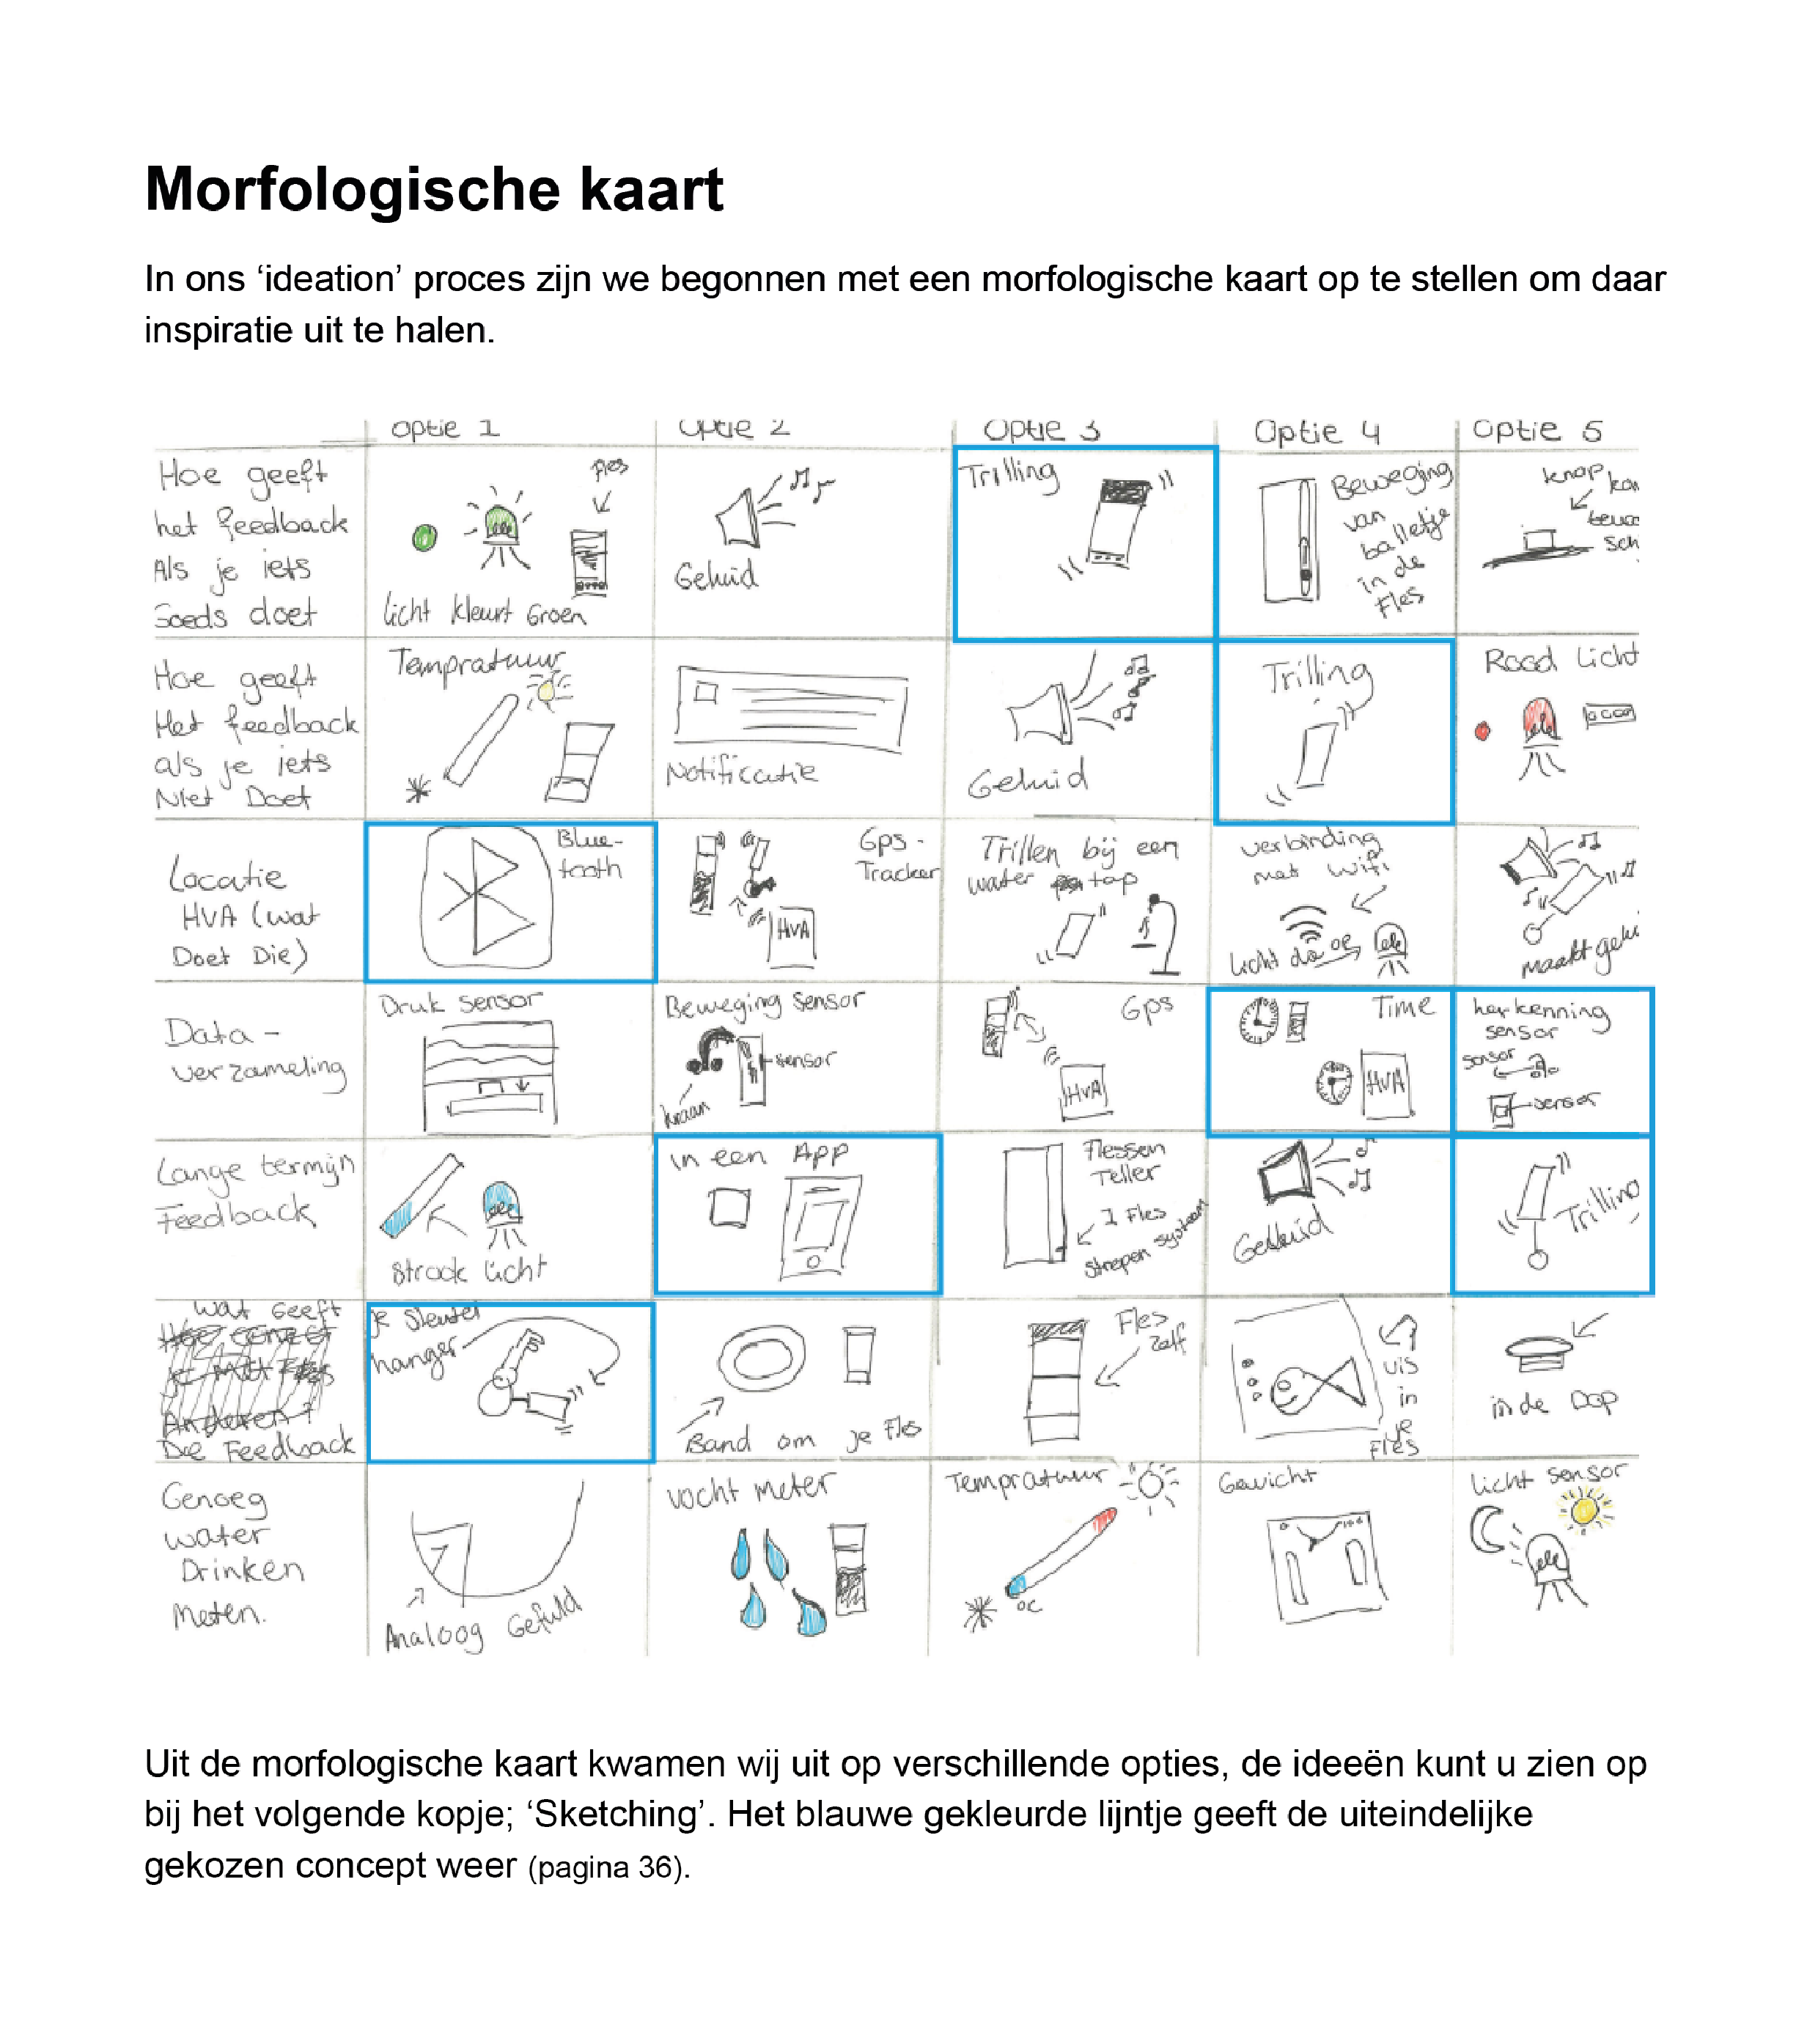 Morfologische kaart
In ons ‘ideation’ proces zijn we begonnen met een morfologische kaart op te stellen om daar
inspiratie uit te halen.
optie 1
optie 2
optie 3
optie 4
optie 5
Hoe geeft
het feedback
Als je iets
Goeds doet
fles
licht kleurt Groen
Geluid
Trilling
Beweging
van
balletje
in de
Fles
knop
Hoe geeft
Het feedback
als je iets
Niet Doet
Tempratuur
Notificatie
Geluid
Trilling
Rood licht
Locatie
HvA (wat
Doet Die)
Blue-
tooth
Gps-
Tracker
HvA
Trillen bij een
water tap
verbinding
met wifi
licht
maakt
Data-
verzameling
Druk sensor
Beweging sensor
sensor
kraan
Gps
HvA
Time
HvA
herkenning
sensor
sensor
sensor
Lange termijn
Feedback
Strook licht
in een App
Flessen
Teller
1 Fles
strepen systeem
Geluid
Trilling
wat Geeft
Die Feedback
je Sleutel
hanger
Band om je Fles
Fles
zelf
vis
in
je
Fles
in de Dop
Genoeg
water
Drinken
meten.
Analoog Gefuld
vocht meter
Tempratuur
0c
Gewicht
licht sensor
Uit de morfologische kaart kwamen wij uit op verschillende opties, de ideeën kunt u zien op
bij het volgende kopje; ‘Sketching’. Het blauwe gekleurde lijntje geeft de uiteindelijke
gekozen concept weer (pagina 36).